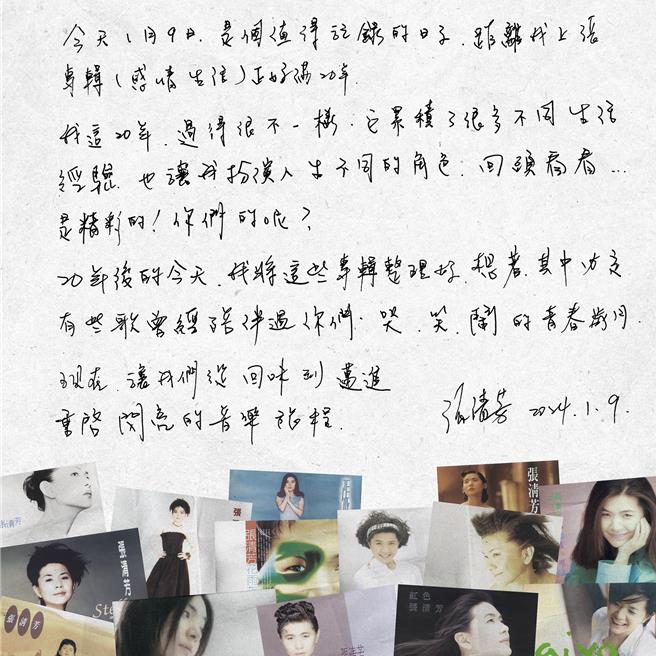 今天1月9日.是個值得註錄的日子.距離我上張
專輯(感情生活)正好滿20年.
我這20年.過得很不一樣.它累積了很多不同生活
經驗.也讓我扮演人生不同的角色.回頭看看...
是精彩的!你們的呢?
20年後的今天.我將這些專輯整理好.想著.其中必定
有些歌曾經陪伴過你們.哭.笑.鬧的青春歲月.
現在.讓我們從回味到邁進
重啓閃亮的音樂旅程.
張清芳 2024.1.9.
張清芳
張清芳
張清芳
張清芳
張清芳
Ste
張清芳
紅色
張清芳
張清芳
aiya